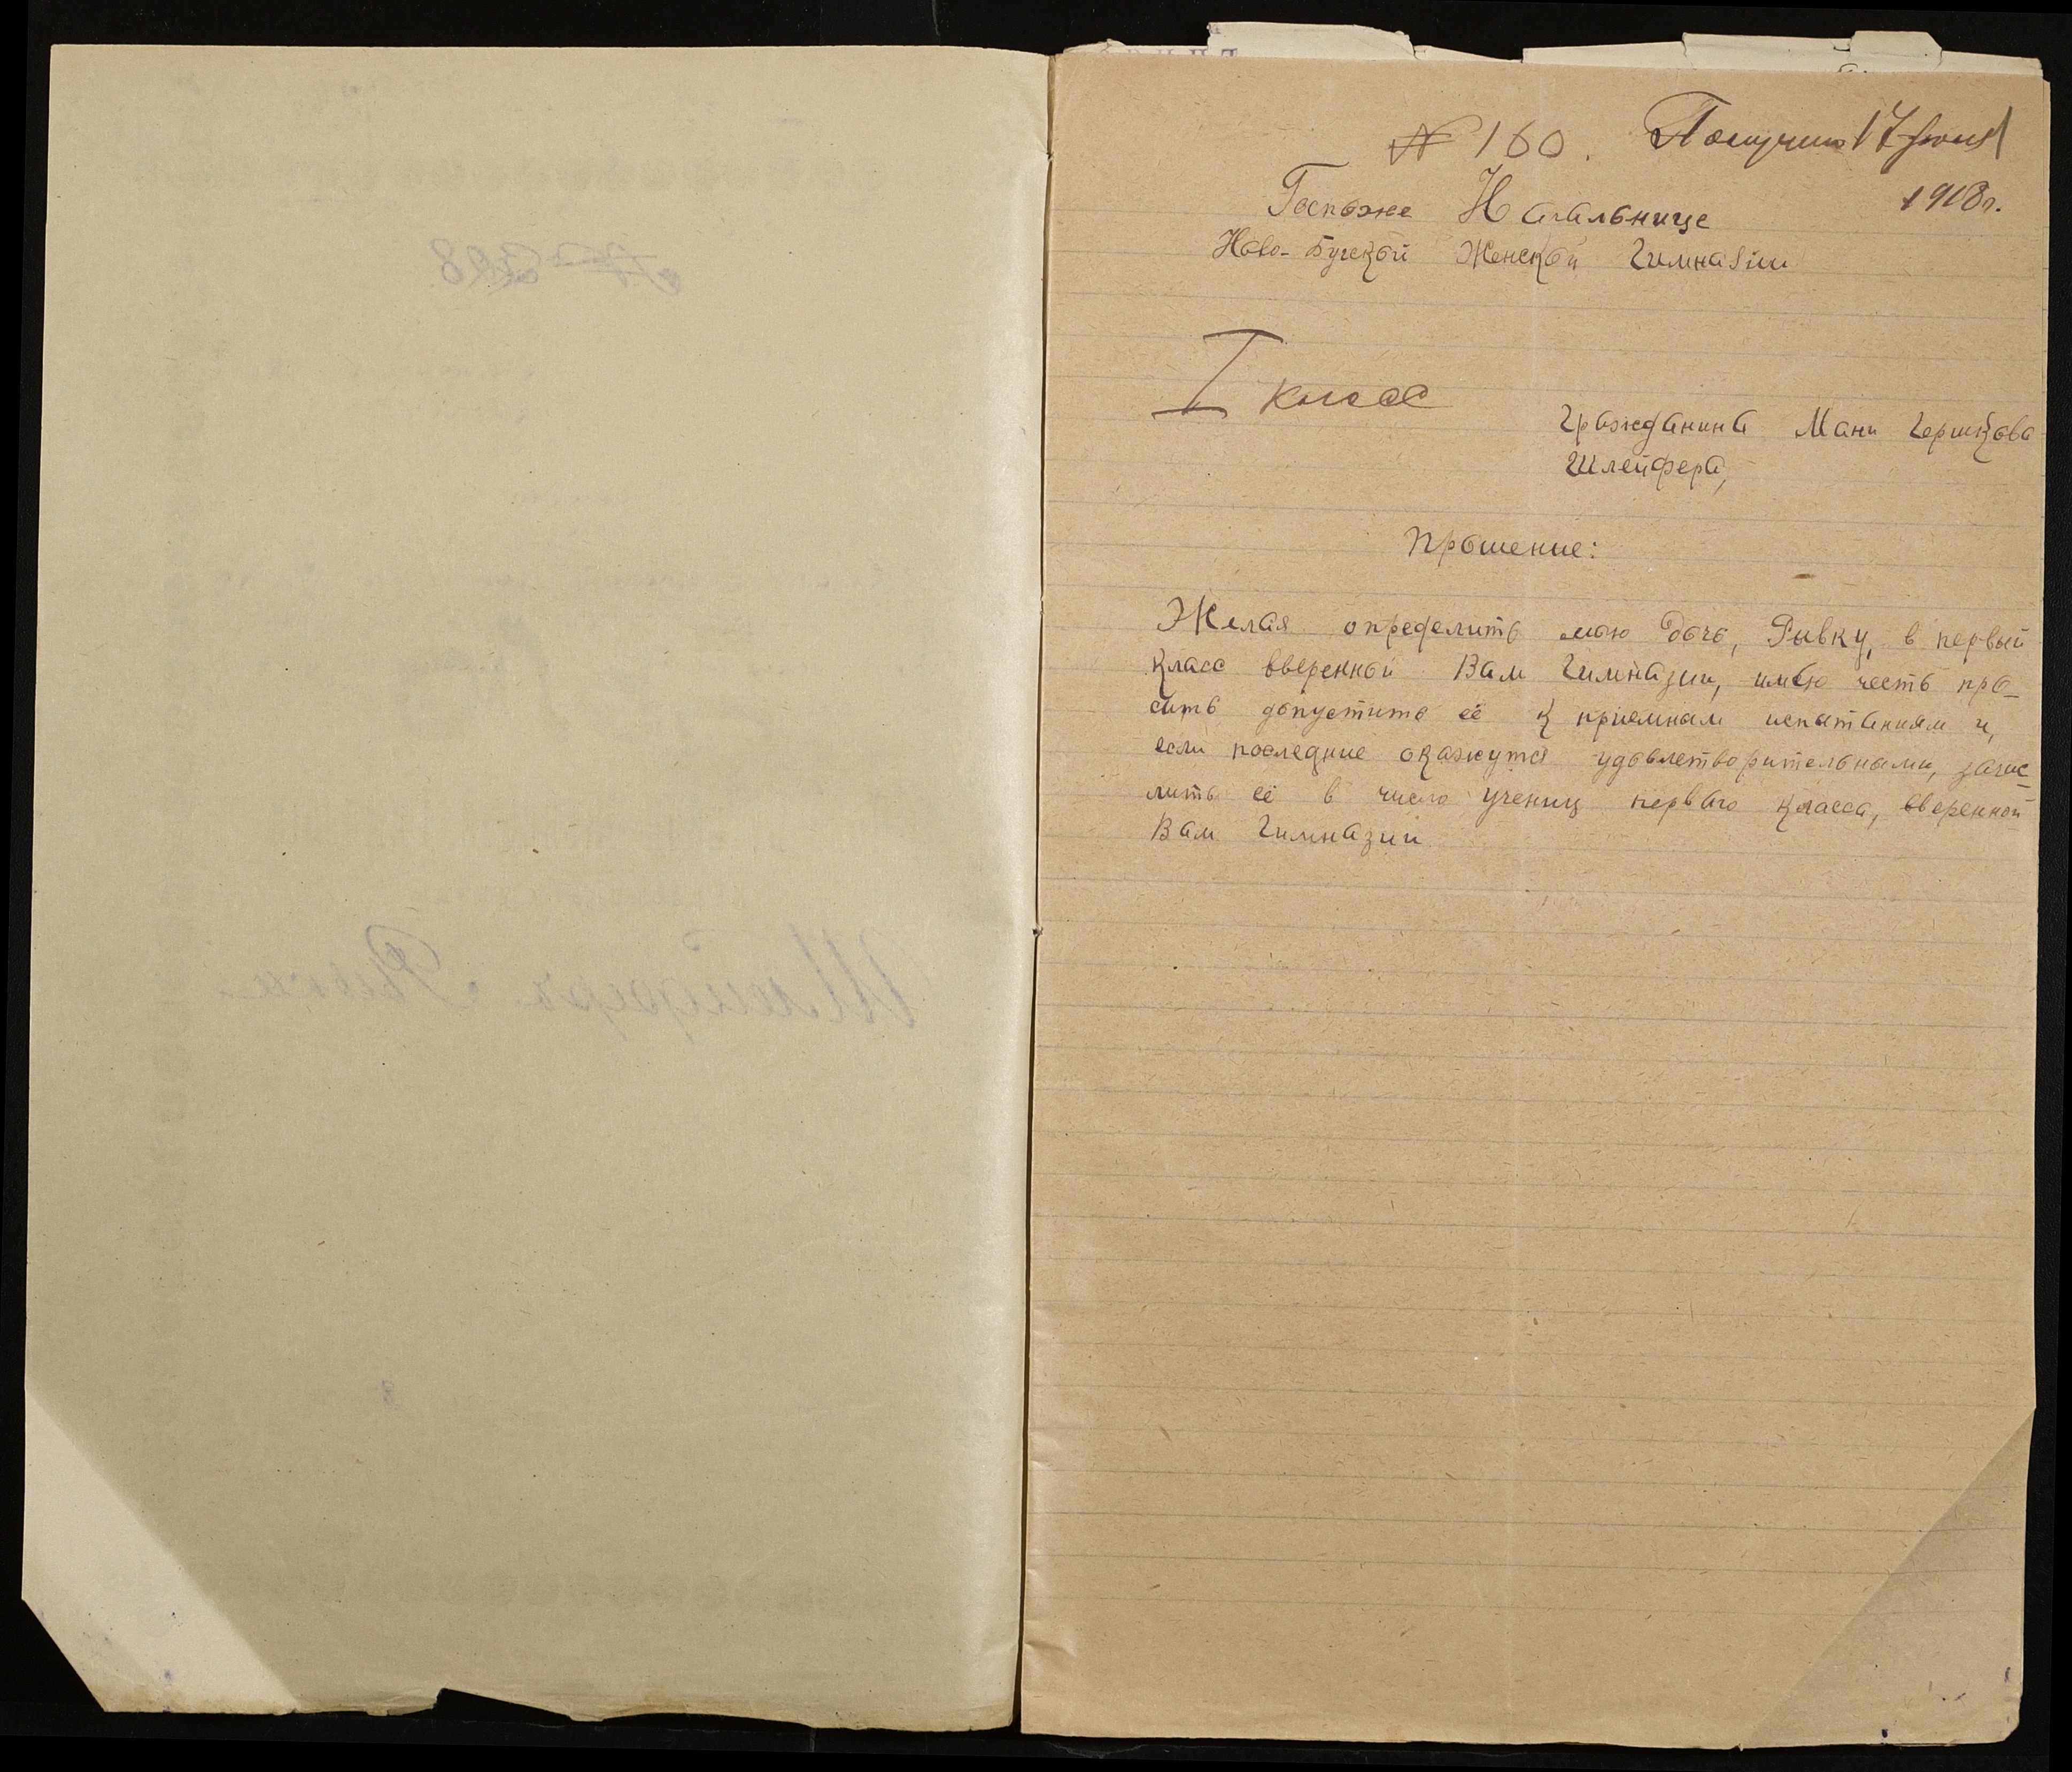 № 160. Получено 17 июня
1918 г.
Госпоже Начальнице
Ново-Бугской Женской Гимназіи
I класс
Гражданина Мани Гершкова
Шлейфера,
Прошение:
Желая определить мою дочь, Рывку, в первый
класс вверенной Вам Гимназии, имею честь про-
сить допустить её к приемным испытаниям и,
если последние окажутся удовлетворительными, зачис-
лить её в число учениц первого класса, вверенной
Вам Гимназии